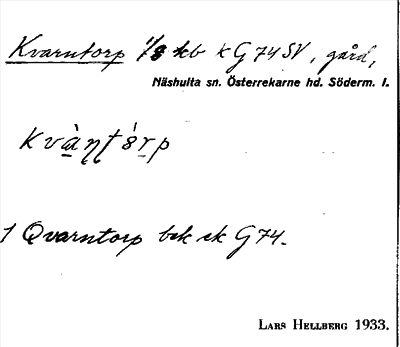 Kvarntorp 1/8 kb k G 74 SV, gård,
Näshulta sn. Österrekarne hd. Söderm. l.
1 Qvarntorp bek ek G 74.
LARS HELLBERG 1933.